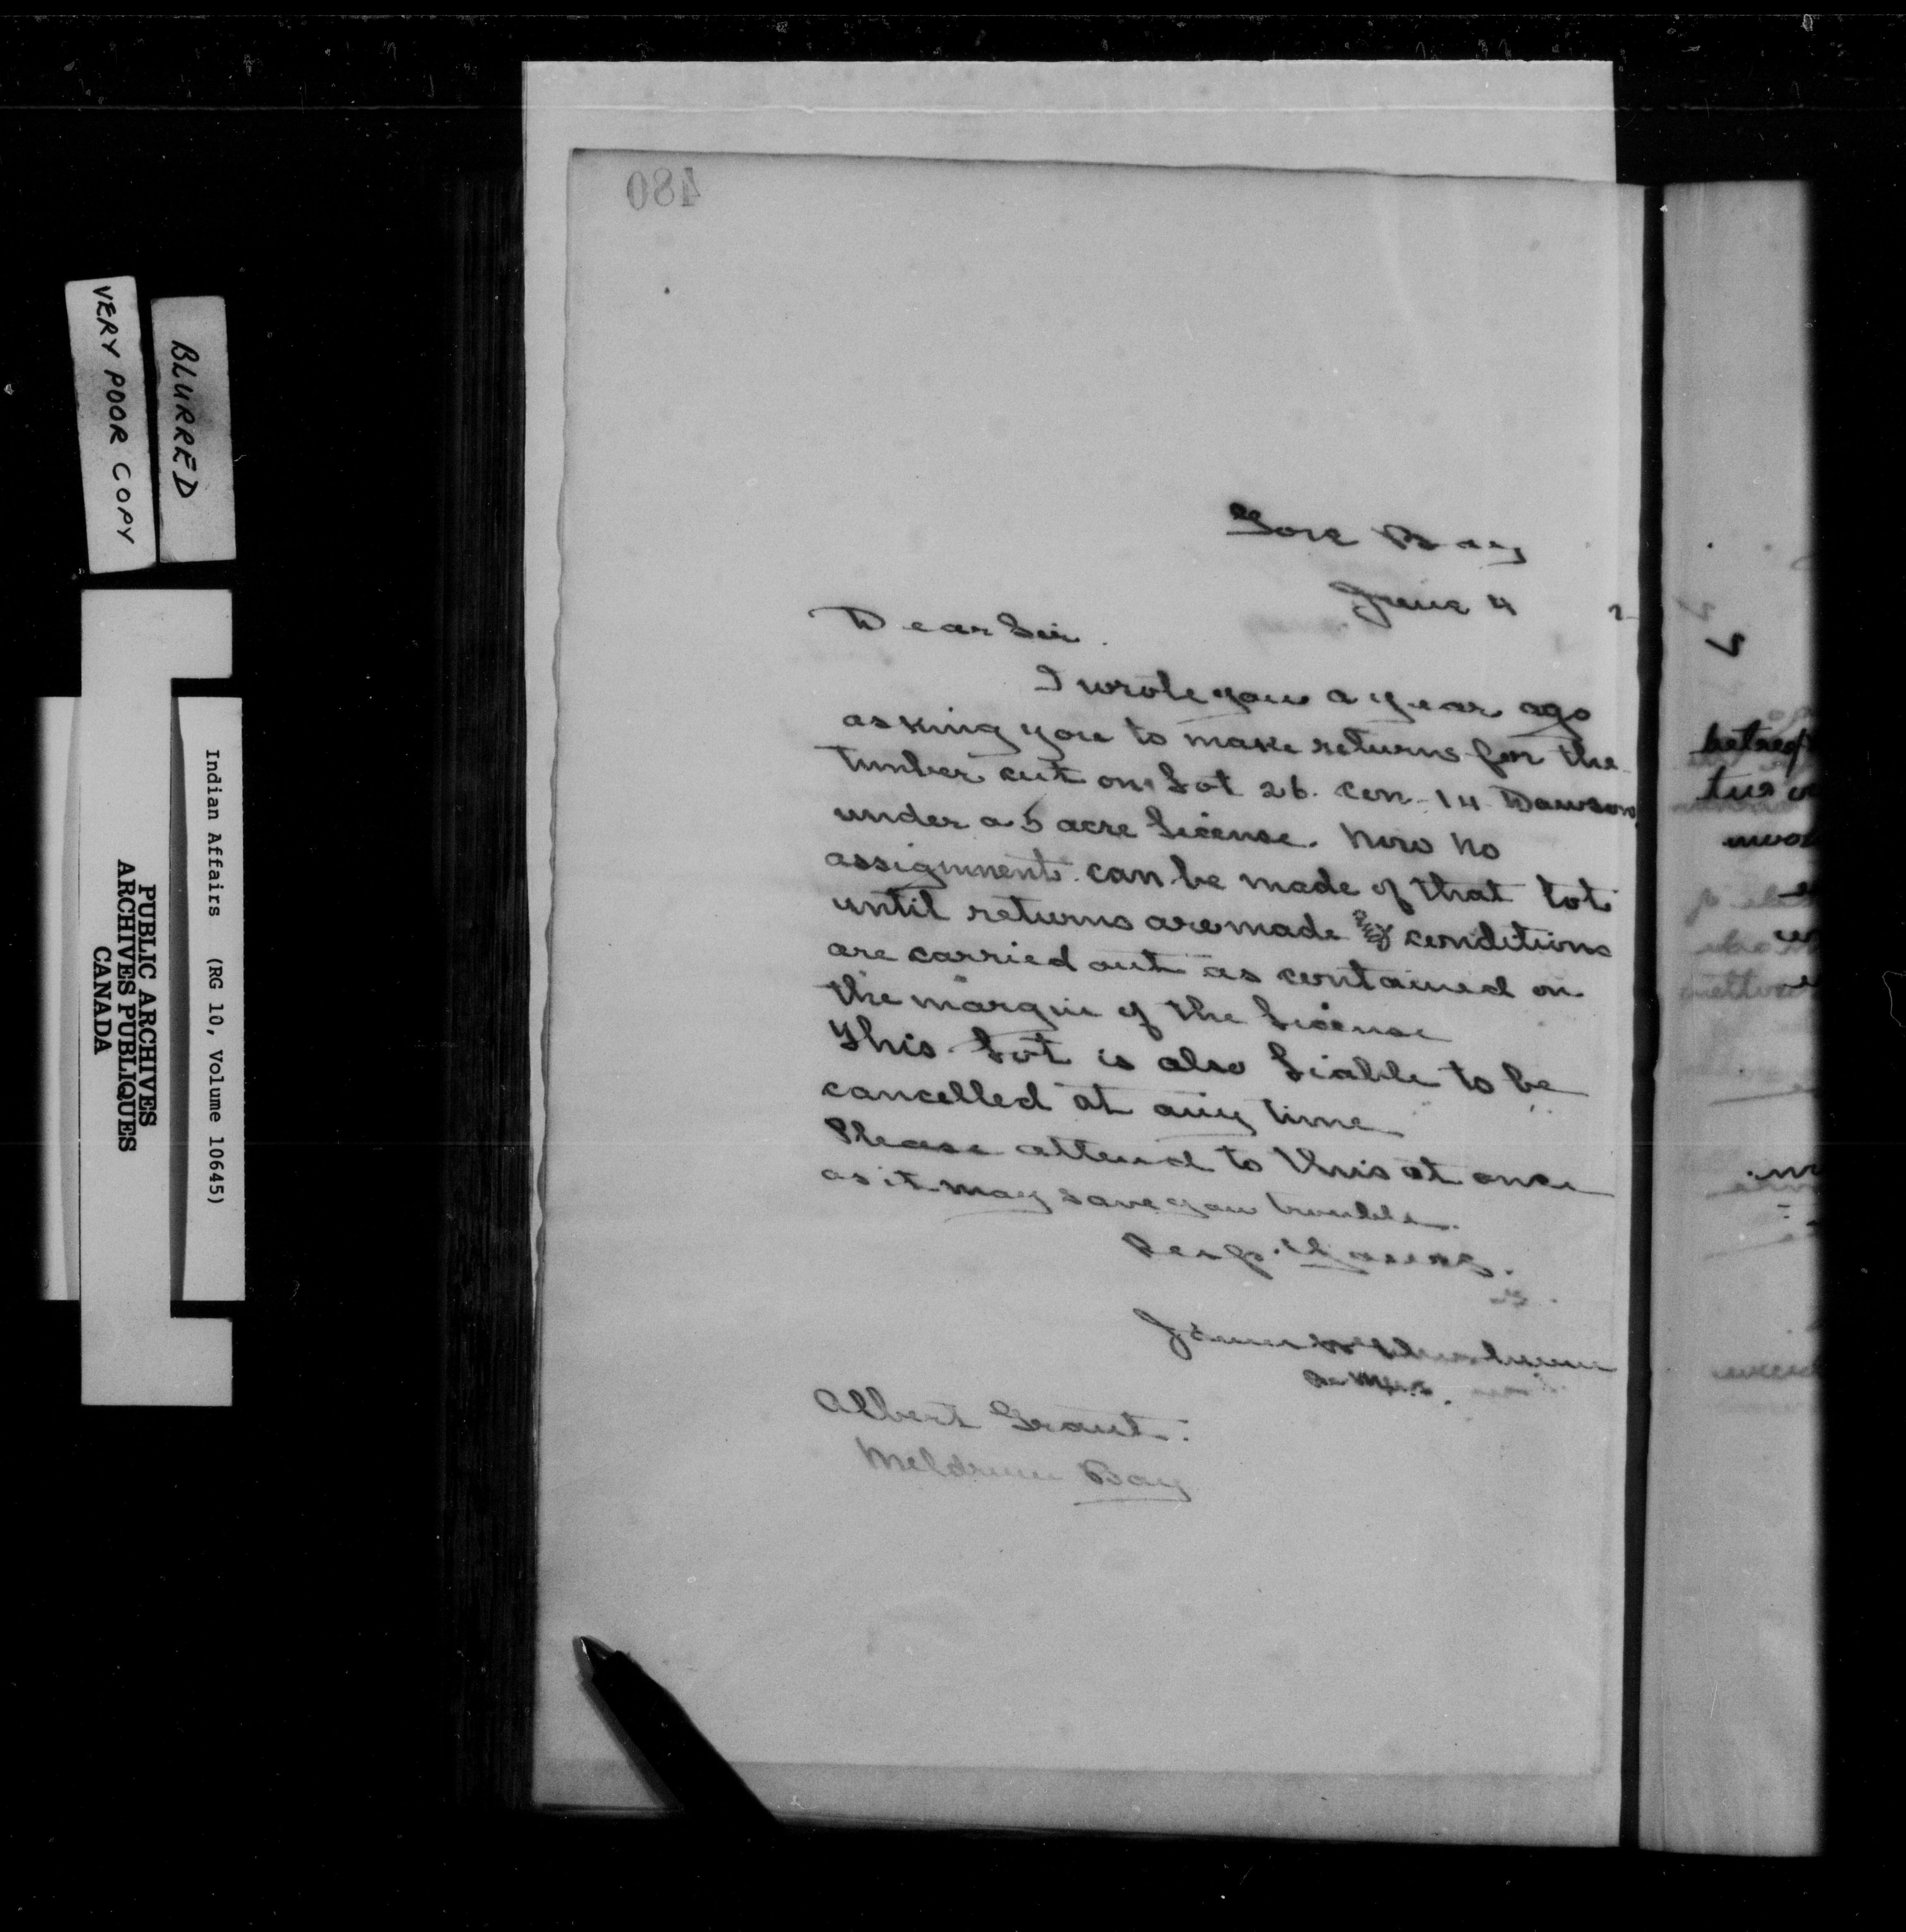 480
Gore Bay
June 4 2
Dear Sir.
I wrote you a year ago
asking you to make returns for the
timber cut on Lot 26. Con. 14 Dawson
under a 5 acre License. Now No
assignment can be made of that Lot
until returns are made conditions
are carried out as contained on
the margin of the License
This Lot is also Liable to be
cancelled at any time
Please attend to this at once
as it may save you trouble.
Resp. Yours.
James
Albert Grant.
Meldrum Bay
BLURRED
VERY POOR COPY
Indian Affairs (RG 10, Volume 10645)
PUBLIC ARCHIVES
ARCHIVES PUBLIQUES
CANADA